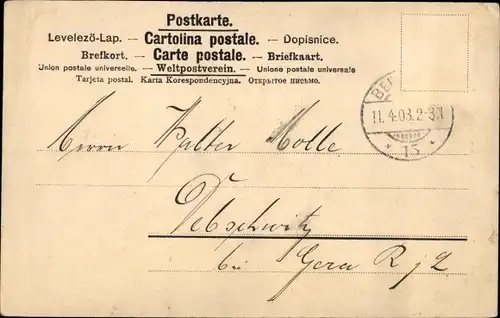 Postkarte.
Levelezö-Lap. — Cartolina postale. — Dopisnice.
Brefkort. — Carte postale. — Briefkaart.
Union postale universelle. — Weltpostverein. — Unione postale universale
Tarjeta postal. Karta Korespondencyjna. Открытое письмо.
BE
11.4.03.2-3
15
Herrn Walter Molle
Debschwitz
bei Gera R j L